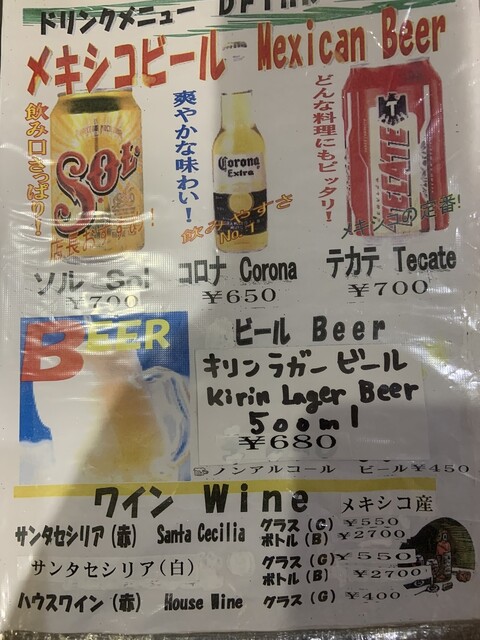 ドリンクメニュー DRINK
メキシコビール Mexican Beer
飲み口さっぱり!
SOL
店長おすすめ!
爽やかな味わい!
Corona
Extra
飲みやすさ
No.1
どんな料理にもピッタリ!
TECATE
メキシコの定番!
ソル Sol
¥700
コロナ Corona
¥650
テカテ Tecate
¥700
BEER
ビール Beer
キリン ラガー ビール
Kirin Lager Beer
500ml
¥680
ノンアルコール ビール ¥450
ワイン Wine メキシコ産
サンタセシリア(赤) Santa Cecilia グラス(G) ¥550
ボトル(B) ¥2700
サンタセシリア(白) グラス(G) ¥550
ボトル(B) ¥2700
ハウスワイン(赤) House Wine グラス(G) ¥400